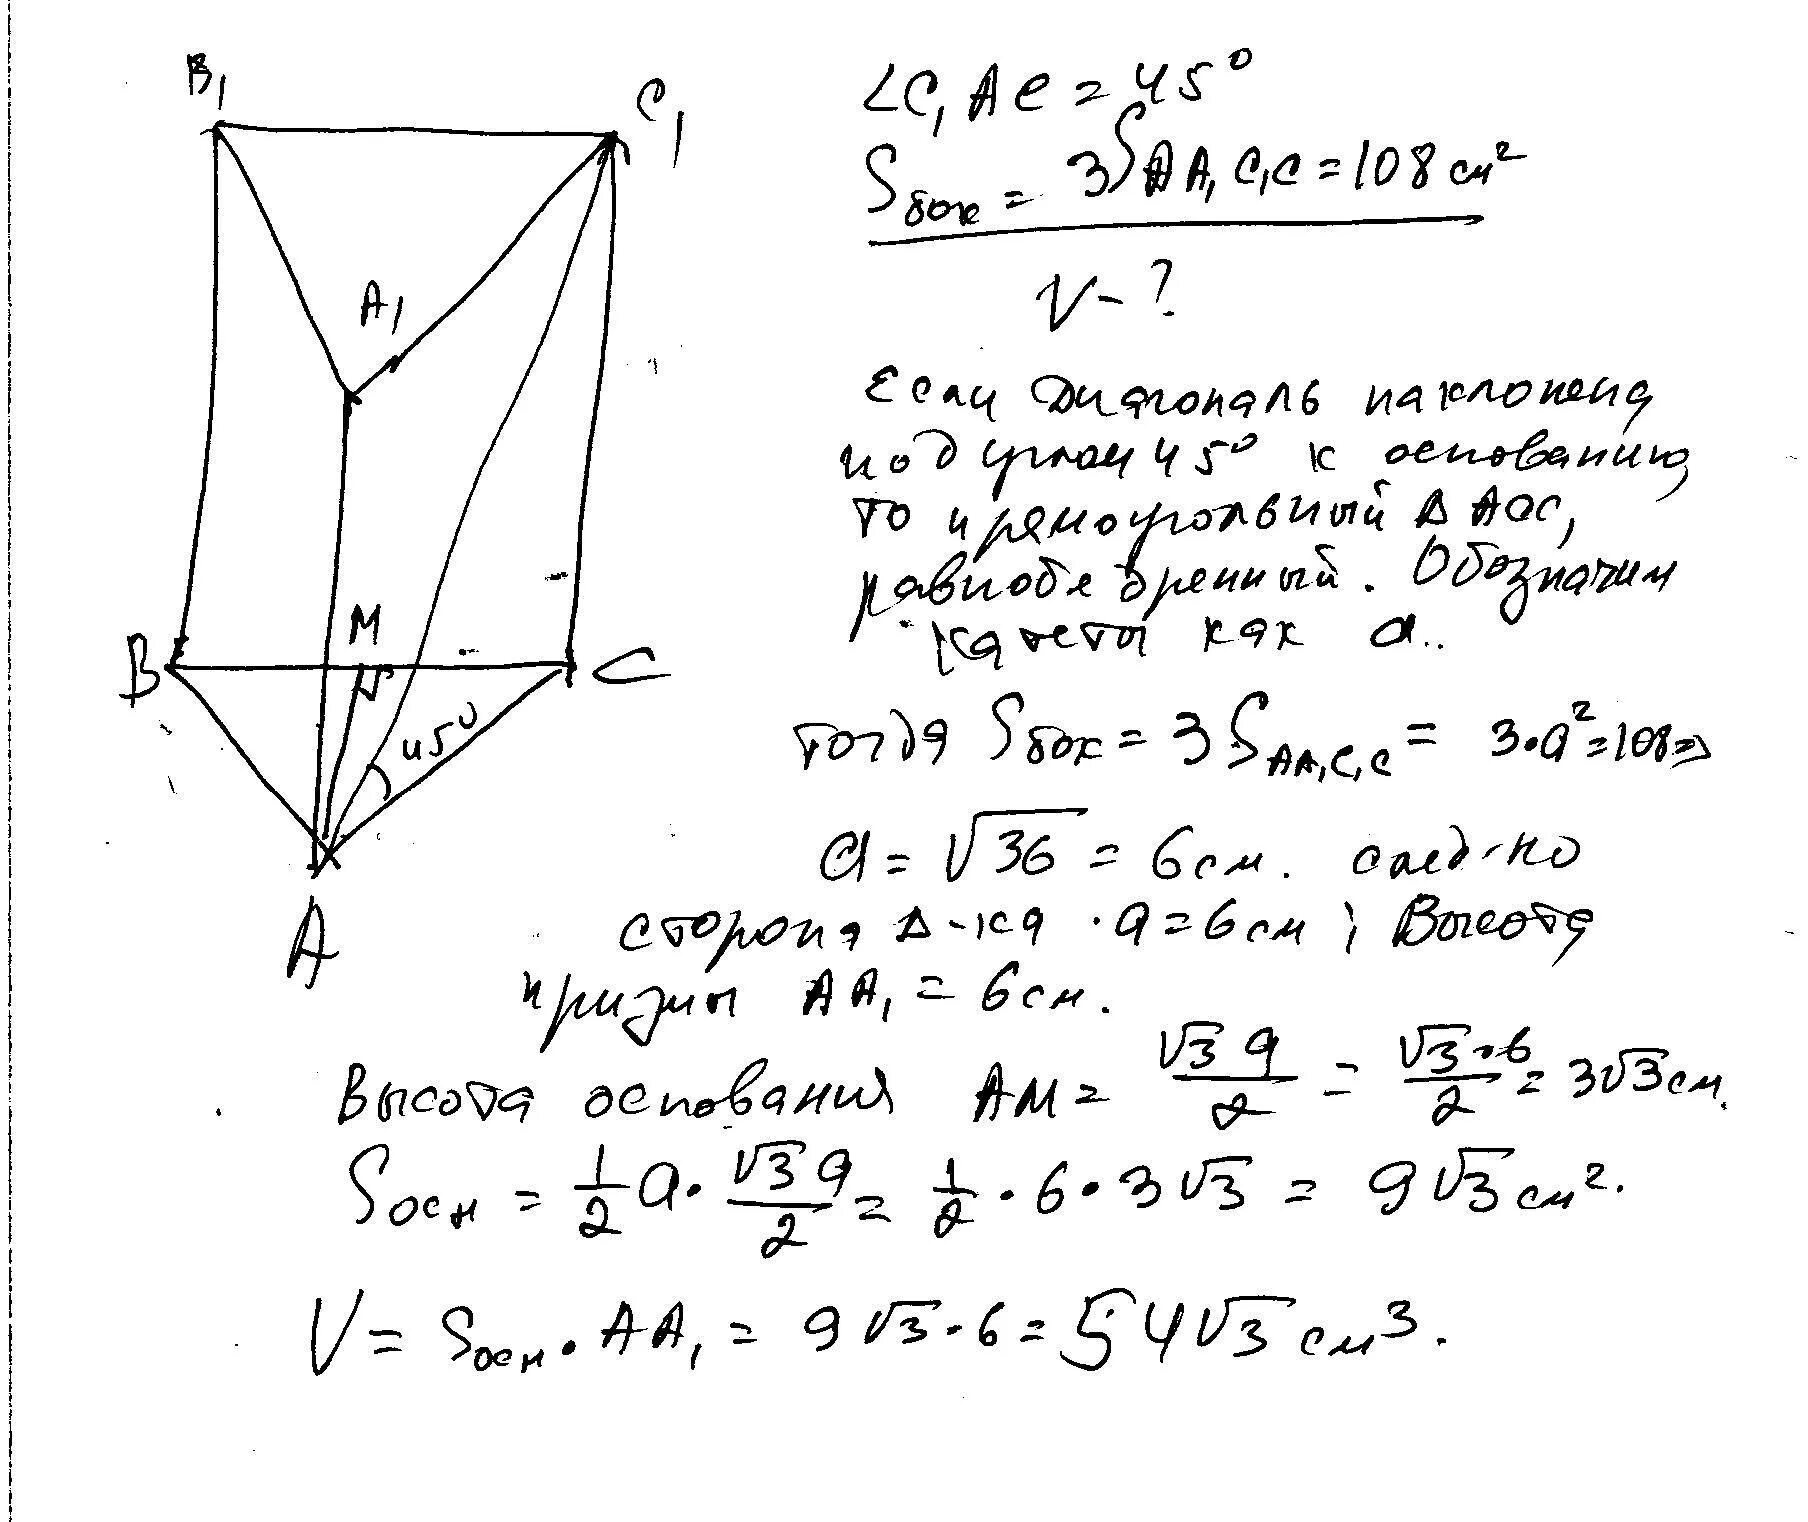 B₁
C₁
∠C₁AC = 45°
Sбок = 3SAA₁C₁C = 108 см²
V - ?
A₁
Если диагональ наклонена
под углом 45° к основанию,
то прямоугольный Δ ACC₁
равнобедренный. Обозначим
катеты как a..
M
B
C
45°
тогда Sбок = 3 SAA₁C₁C = 3·a² = 108 ⇒
a = √36 = 6 см. след-но
A
сторона Δ-ка · a = 6 см ; Высота
призмы AA₁ = 6 см.
Высота основания AM = √3 a / 2 = √3·6 / 2 = 3√3 см.
Sосн = 1/2 a · √3 a / 2 = 1/2 · 6 · 3√3 = 9√3 см².
V = Sосн · AA₁ = 9√3 · 6 = 54√3 см³.